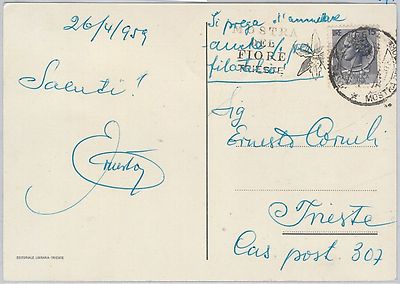 26/4/959
Saluti!
Ernesto
EDITORIALE LIBRARIA-TRIESTE
Si prega d'annullare
anche
filatelia
MOSTRA
DEL
FIORE
TRIESTE
Sig
Ernesto Corneli
Trieste
Cas post. 307